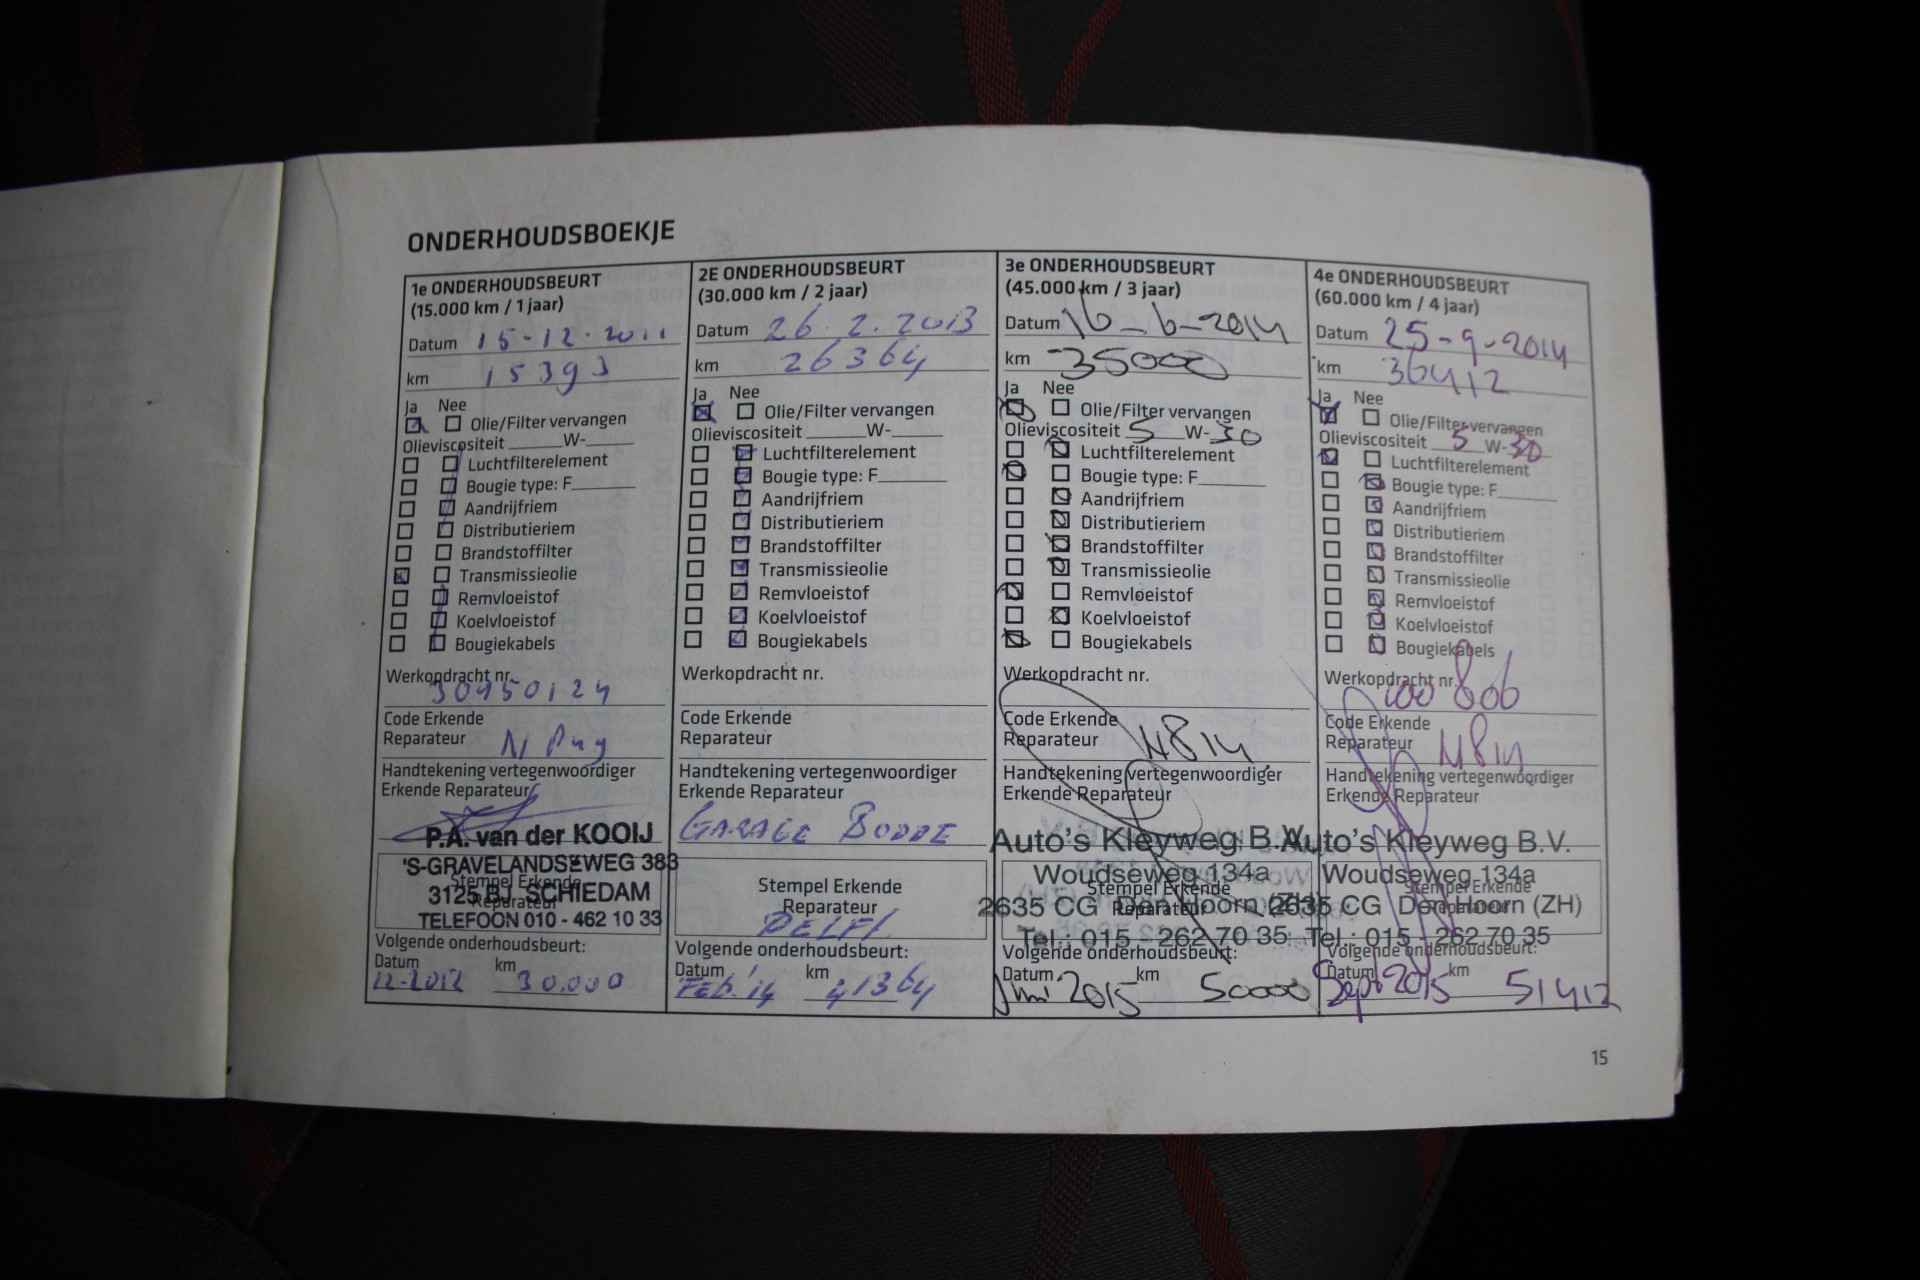 ONDERHOUDSBOEKJE
1e ONDERHOUDSBEURT
(15.000 km / 1 jaar)
Datum 15-12-2011
km 15393
Ja Nee
Olie/Filter vervangen
Olieviscositeit W-
Luchtfilterelement
Bougie type: F
Aandrijfriem
Distributieriem
Brandstoffilter
Transmissieolie
Remvloeistof
Koelvloeistof
Bougiekabels
Werkopdracht nr.
30950124
Code Erkende
Reparateur
Handtekening vertegenwoordiger
Erkende Reparateur
P.A. van der KOOIJ
'S-GRAVELANDSEWEG 383
Stempel Erkende
3125 BJ SCHIEDAM
Reparateur
TELEFOON 010 - 462 10 33
Volgende onderhoudsbeurt:
Datum km
12-2012 30.000
2E ONDERHOUDSBEURT
(30.000 km / 2 jaar)
Datum 26.2.2013
km 26364
Ja Nee
Olie/Filter vervangen
Olieviscositeit W-
Luchtfilterelement
Bougie type: F
Aandrijfriem
Distributieriem
Brandstoffilter
Transmissieolie
Remvloeistof
Koelvloeistof
Bougiekabels
Werkopdracht nr.
Code Erkende
Reparateur
Handtekening vertegenwoordiger
Erkende Reparateur
GARAGE BODDE
Stempel Erkende
Reparateur
DELFT
Volgende onderhoudsbeurt:
Datum km
Feb. '14 41364
3e ONDERHOUDSBEURT
(45.000 km / 3 jaar)
Datum 16-6-2014
km 35000
Ja Nee
Olie/Filter vervangen
Olieviscositeit 5 W-30
Luchtfilterelement
Bougie type: F
Aandrijfriem
Distributieriem
Brandstoffilter
Transmissieolie
Remvloeistof
Koelvloeistof
Bougiekabels
Werkopdracht nr.
Code Erkende
Reparateur N814
Handtekening vertegenwoordiger
Erkende Reparateur
Auto's Kleyweg B.V.
Woudseweg 134a
Stempel Erkende
2635 CG Den Hoorn (ZH)
Reparateur
Tel.: 015 - 262 70 35
Volgende onderhoudsbeurt:
Datum km
Juni 2015 50000
4e ONDERHOUDSBEURT
(60.000 km / 4 jaar)
Datum 25-9-2014
km 36412
Ja Nee
Olie/Filter vervangen
Olieviscositeit 5 W-30
Luchtfilterelement
Bougie type: F
Aandrijfriem
Distributieriem
Brandstoffilter
Transmissieolie
Remvloeistof
Koelvloeistof
Bougiekabels
Werkopdracht nr.
100806
Code Erkende
Reparateur N814
Handtekening vertegenwoordiger
Erkende Reparateur
Auto's Kleyweg B.V.
Woudseweg 134a
Stempel Erkende
2635 CG Den Hoorn (ZH)
Reparateur
Tel.: 015 - 262 70 35
Volgende onderhoudsbeurt:
Datum km
Sept 2015 51412
15